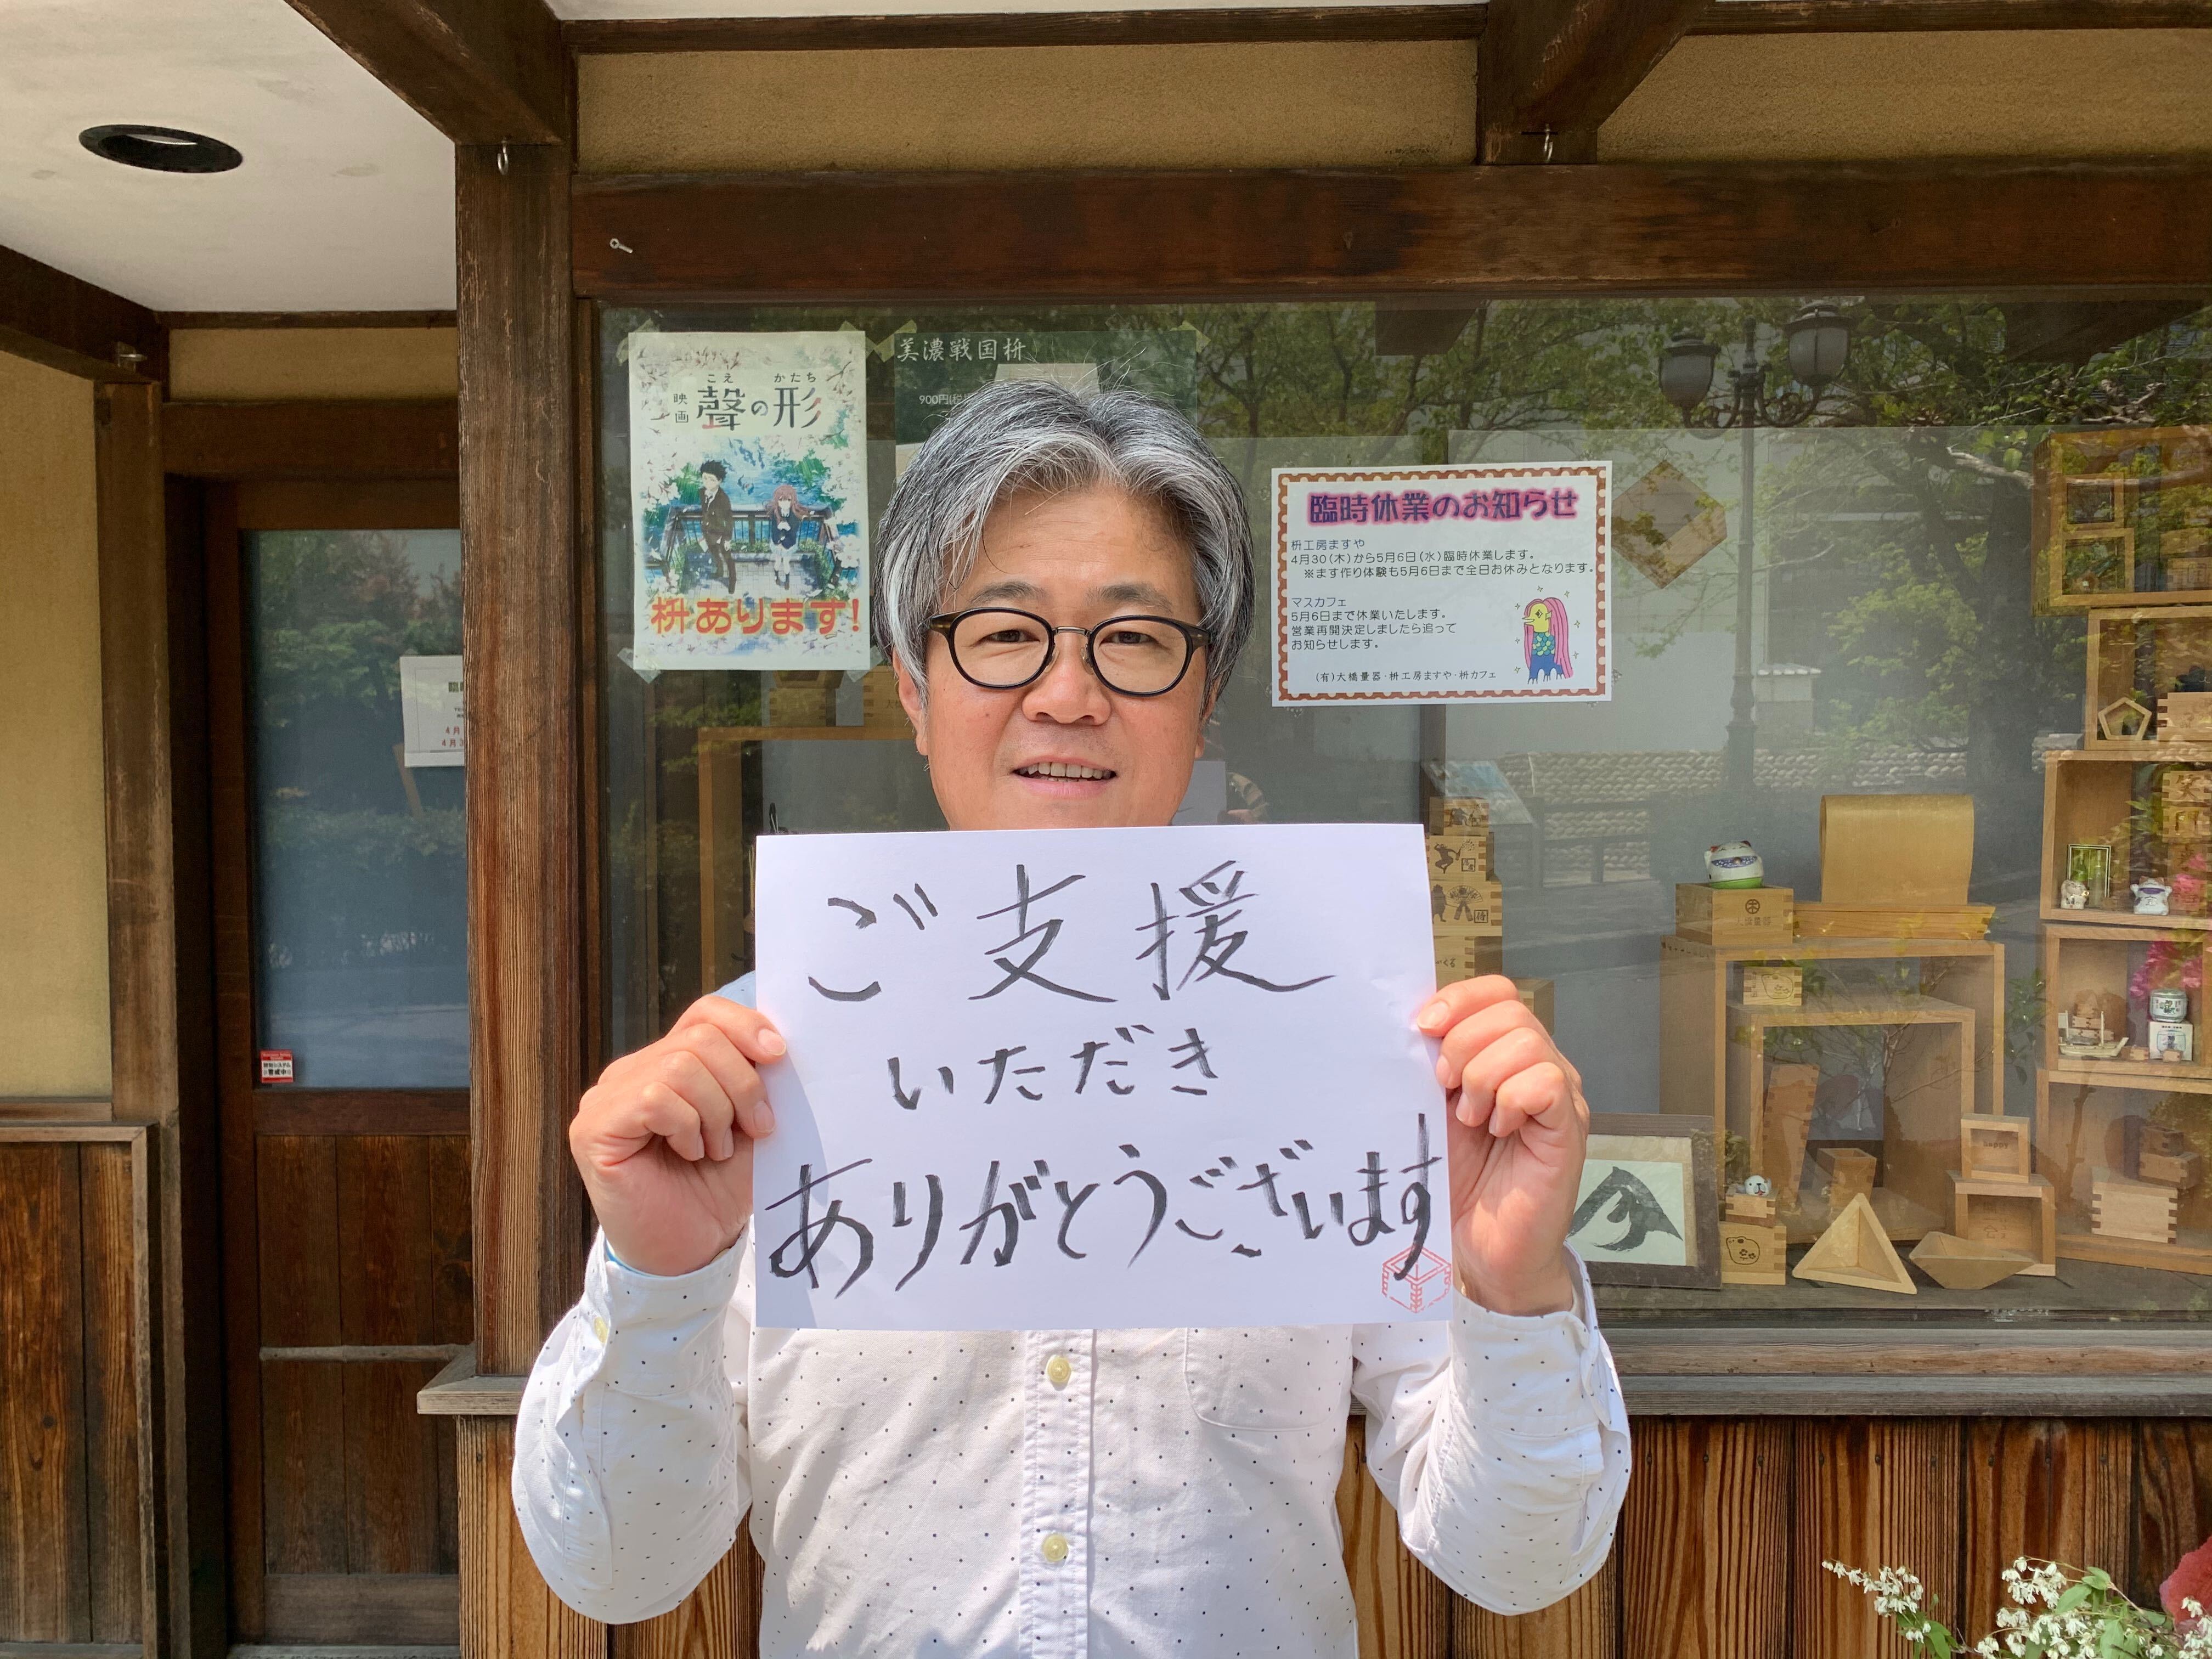 こえ かたち
映画 聲の形
枡あります!
美濃戦国枡
900円(税
臨時休業のお知らせ
枡工房ますや
4月30(木)から5月6日(水)臨時休業します。
※ます作り体験も5月6日まで全日お休みとなります。
マスカフェ
5月6日まで休業いたします。
営業再開決定しましたら追って
お知らせします。
(有)大橋量器・枡工房ますや・枡カフェ
ご支援
いただき
ありがとうございます